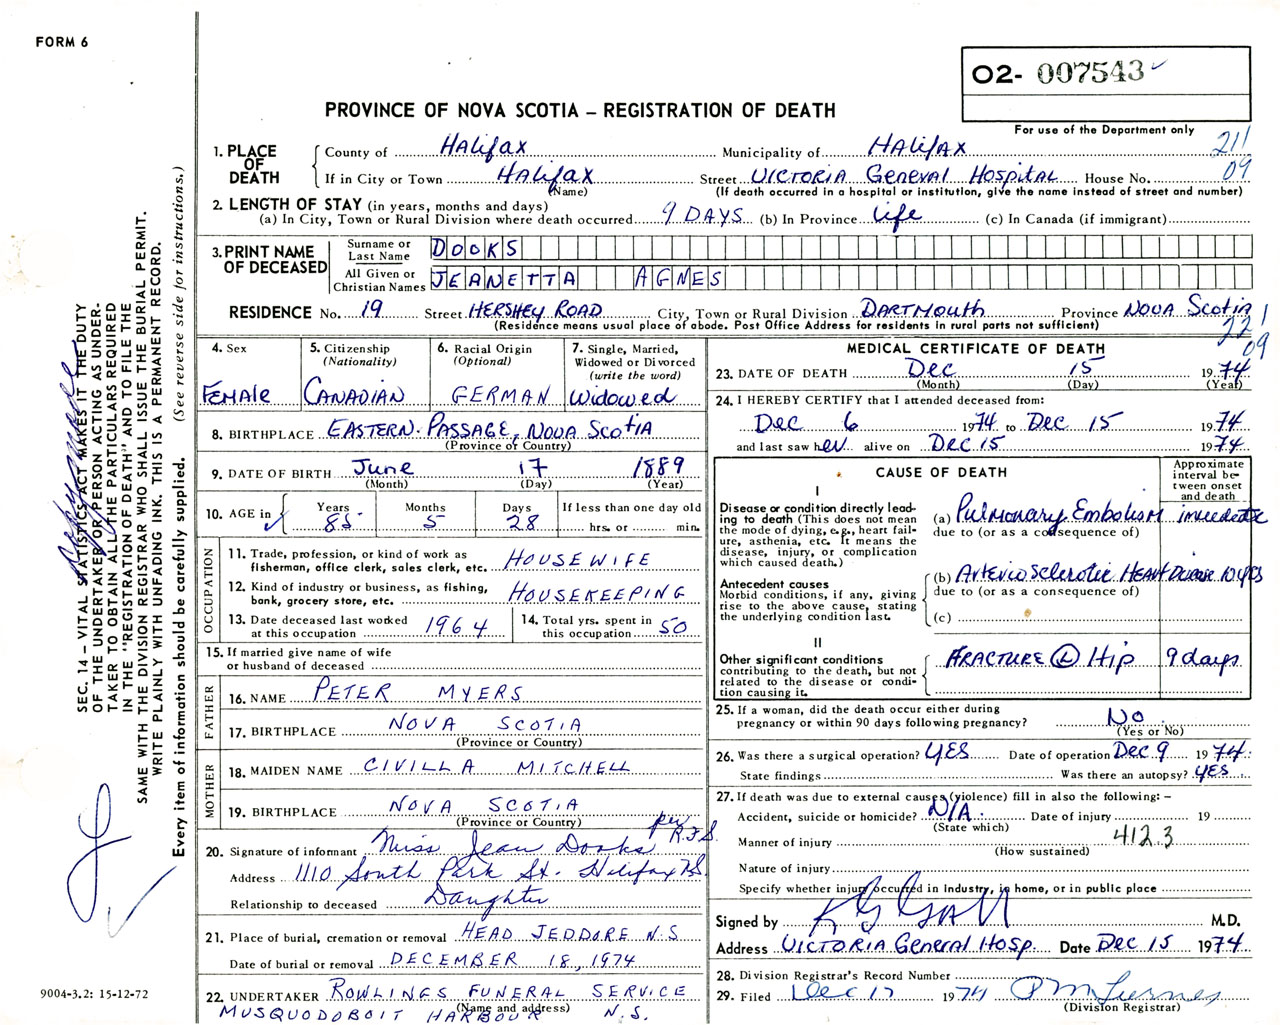 FORM 6
O2- 007543
PROVINCE OF NOVA SCOTIA – REGISTRATION OF DEATH
For use of the Department only
211
09
1. PLACE OF DEATH
County of Halifax Municipality of Halifax
If in City or Town Halifax Street Victoria General Hospital House No.
(Name) (If death occurred in a hospital or institution, give the name instead of street and number)
2. LENGTH OF STAY (in years, months and days)
(a) In City, Town or Rural Division where death occurred 9 DAYS (b) In Province life (c) In Canada (if immigrant)
3. PRINT NAME OF DECEASED
Surname or Last Name DOOKS
All Given or Christian Names JEANETTA AGNES
RESIDENCE No. 19 Street HERSHEY ROAD City, Town or Rural Division DARTMOUTH Province NOVA SCOTIA
(Residence means usual place of abode. Post Office Address for residents in rural parts not sufficient)
221
09
4. Sex 5. Citizenship (Nationality) 6. Racial Origin (Optional) 7. Single, Married, Widowed or Divorced (write the word)
Female CANADIAN GERMAN Widowed
8. BIRTHPLACE EASTERN PASSAGE, NOVA SCOTIA
(Province of Country)
9. DATE OF BIRTH June 17 1889
(Month) (Day) (Year)
10. AGE in Years 85 Months 5 Days 28 If less than one day old hrs. or min.
OCCUPATION
11. Trade, profession, or kind of work as fisherman, office clerk, sales clerk, etc. HOUSEWIFE
12. Kind of industry or business, as fishing, bank, grocery store, etc. HOUSEKEEPING
13. Date deceased last worked at this occupation 1964 14. Total yrs. spent in this occupation 50
15. If married give name of wife or husband of deceased
FATHER
16. NAME PETER MYERS
17. BIRTHPLACE NOVA SCOTIA
(Province or Country)
MOTHER
18. MAIDEN NAME CIVILLA MITCHELL
19. BIRTHPLACE NOVA SCOTIA
(Province or Country)
20. Signature of informant Miss Jean Dooks per R.F.S.
Address 1110 South Park St. Halifax N.S.
Relationship to deceased Daughter
21. Place of burial, cremation or removal HEAD JEDDORE N.S
Date of burial or removal DECEMBER 18, 1974
22. UNDERTAKER ROWLINGS FUNERAL SERVICE
(Name and address)
MUSQUODOBOIT HARBOUR N.S.
MEDICAL CERTIFICATE OF DEATH
23. DATE OF DEATH Dec 15 1974
(Month) (Day) (Year)
24. I HEREBY CERTIFY that I attended deceased from:
Dec 6 1974 to Dec 15 1974
and last saw her alive on Dec 15 1974
CAUSE OF DEATH
Approximate interval between onset and death
I
Disease or condition directly leading to death (This does not mean the mode of dying, e.g., heart failure, asthenia, etc. It means the disease, injury, or complication which caused death.)
(a) Pulmonary Embolism immediate
due to (or as a consequence of)
Antecedent causes
Morbid conditions, if any, giving rise to the above cause, stating the underlying condition last.
(b) Arteriosclerotic HEART Disease 10 yrs
due to (or as a consequence of)
(c)
II
Other significant conditions contributing to the death, but not related to the disease or condition causing it.
FRACTURE (L) Hip 9 days
25. If a woman, did the death occur either during pregnancy or within 90 days following pregnancy? No
(Yes or No)
26. Was there a surgical operation? YES Date of operation Dec 9 1974
State findings Was there an autopsy? YES
27. If death was due to external causes (violence) fill in also the following: –
Accident, suicide or homicide? N/A Date of injury 19
(State which)
Manner of injury 412.3
(How sustained)
Nature of injury
Specify whether injury occurred in industry, in home, or in public place
Signed by M.D.
Address VICTORIA General Hosp. Date Dec 15 1974
28. Division Registrar's Record Number
29. Filed Dec 17 1974
(Division Registrar)
SEC. 14 – VITAL STATISTICS ACT MAKES IT THE DUTY
OF THE UNDERTAKER OR PERSON ACTING AS UNDER-
TAKER TO OBTAIN ALL THE PARTICULARS REQUIRED
IN THE "REGISTRATION OF DEATH" AND TO FILE THE
SAME WITH THE DIVISION REGISTRAR WHO SHALL ISSUE THE BURIAL PERMIT.
WRITE PLAINLY WITH UNFADING INK. THIS IS A PERMANENT RECORD.
Every item of information should be carefully supplied. (See reverse side for instructions.)
9004-3.2: 15-12-72